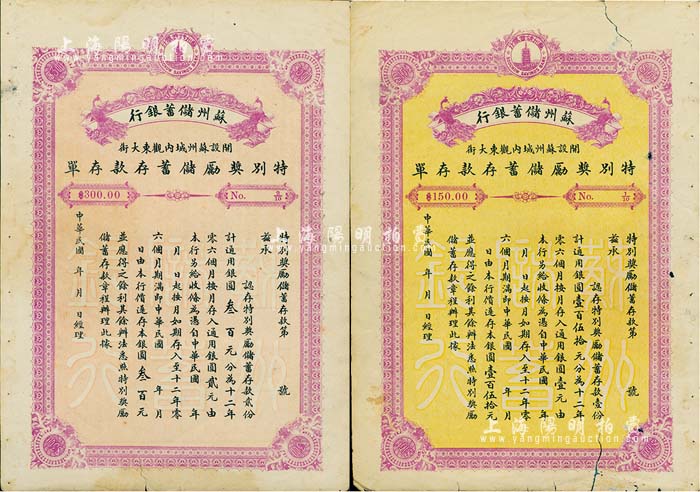 蘇州儲蓄銀行
開設蘇州城內觀東大街
特別獎勵儲蓄存款存單
$300.00
No.
特別獎勵儲蓄存款第 號
茲承
認存特別獎勵儲蓄存款貳份
計通用銀圓叁百元分為十二年
零六個月按月存入通用銀圓貳元由
本行另給收條為憑自中華民國 年
月 日起按月如期存入至十二年零
六個月期滿即中華民國 年 月
日由本行償還存本銀圓叁百元
並應得之餘利其餘辦法悉照特別獎勵
儲蓄存款章程辦理此據
中華民國 年 月 日經理
蘇州儲蓄銀行
開設蘇州城內觀東大街
特別獎勵儲蓄存款存單
$150.00
No.
特別獎勵儲蓄存款第 號
茲承
認存特別獎勵儲蓄存款壹份
計通用銀圓壹百伍拾元分為十二年
零六個月按月存入通用銀圓壹元由
本行另給收條為憑自中華民國 年
月 日起按月如期存入至十二年零
六個月期滿即中華民國 年 月
日由本行償還存本銀圓壹百伍拾元
並應得之餘利其餘辦法悉照特別獎勵
儲蓄存款章程辦理此據
中華民國 年 月 日經理
上海陽明拍賣
www.yangmingauction.com